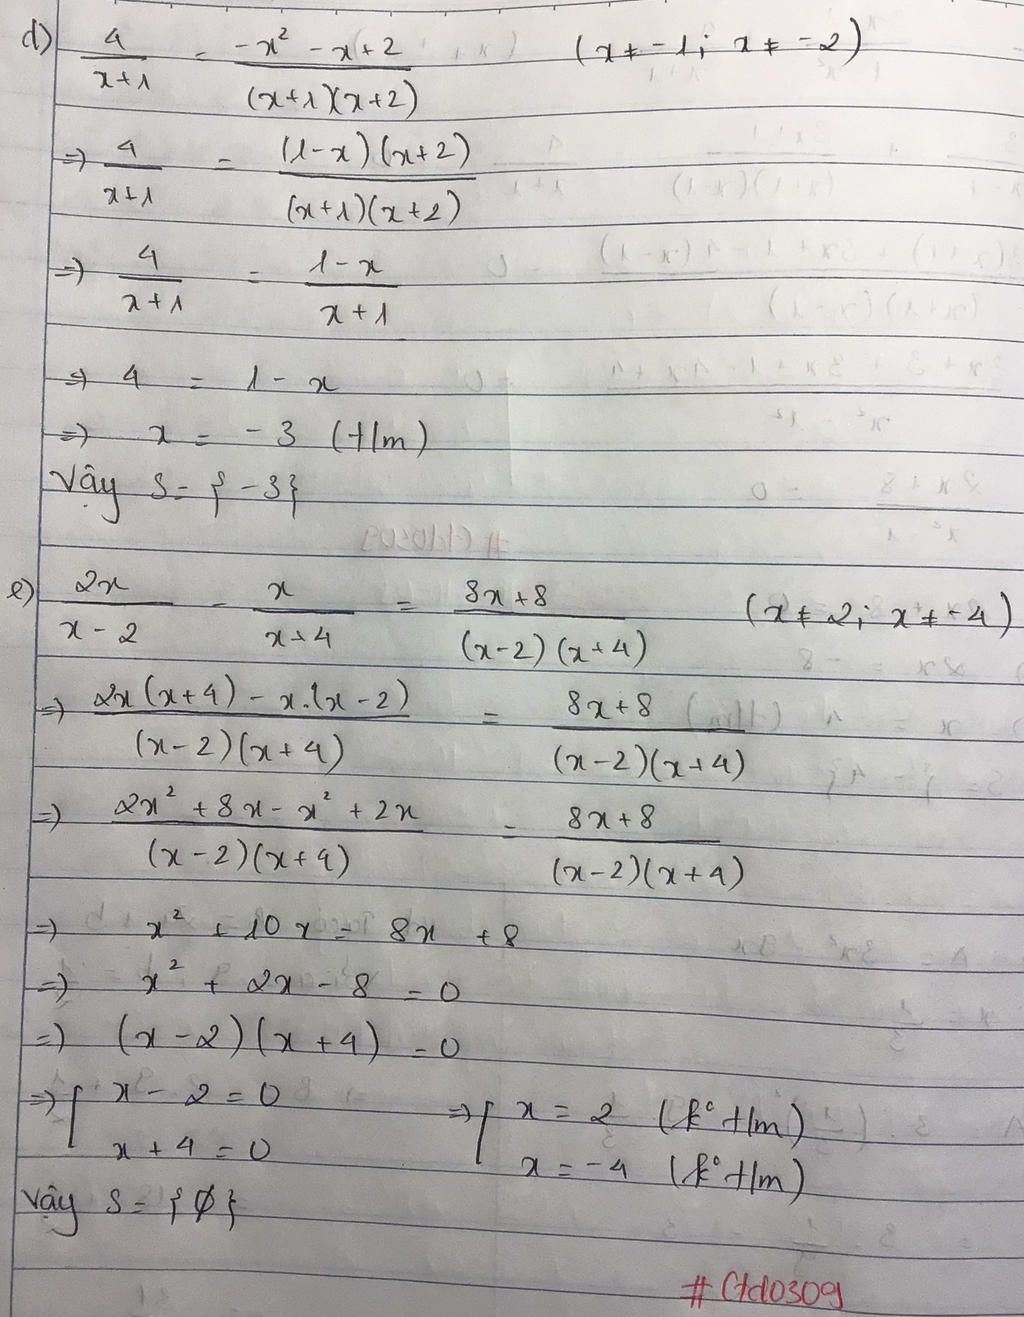 d) 4/(x+1) = (-x² - x + 2)/((x+1)(x+2)) (x ≠ -1; x ≠ -2)
=> 4/(x+1) = ((1-x)(x+2))/((x+1)(x+2))
=> 4/(x+1) = (1-x)/(x+1)
=> 4 = 1 - x
=> x = -3 (t/m)
Vậy S = {-3}
e) 2x/(x-2) - x/(x+4) = (8x+8)/((x-2)(x+4)) (x ≠ 2; x ≠ -4)
=> (2x(x+4) - x.(x-2))/((x-2)(x+4)) = (8x+8)/((x-2)(x+4))
=> (2x² + 8x - x² + 2x)/((x-2)(x+4)) = (8x+8)/((x-2)(x+4))
=> x² + 10x = 8x + 8
=> x² + 2x - 8 = 0
=> (x-2)(x+4) = 0
=> [ x - 2 = 0 => [ x = 2 (k° t/m)
x + 4 = 0 x = -4 (k° t/m)
Vậy S = {∅}
#Ctd0309